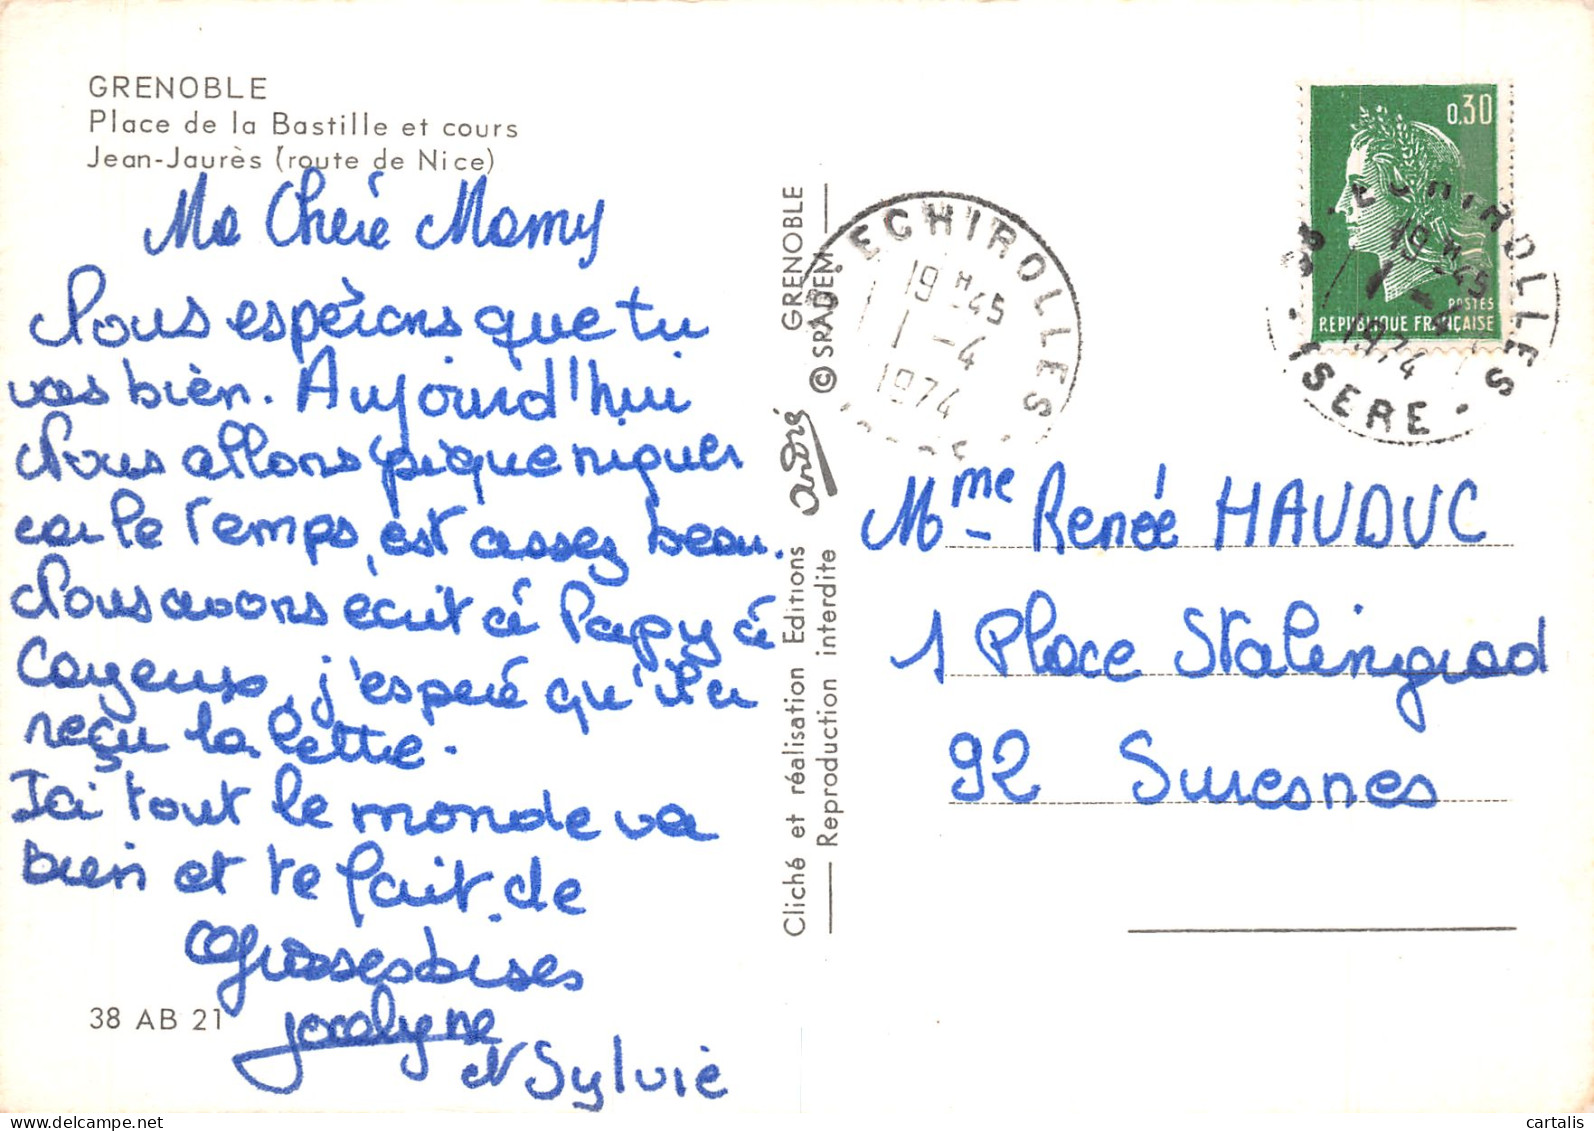 GRENOBLE
Place de la Bastille et cours
Jean-Jaurès (route de Nice)
Ma Chérie Mamy
Nous espérons que tu
vas bien. Aujourd'hui
Nous allons pique niquer
car le Temps, est assez beau.
Nous avons écrit à Papy à
Cayeux, j'espère qu'il a
reçu la lettre.
Ici tout le monde va
bien et te fait de
Grosses bises
Jocelyne
Sylvie
38 AB 21
Cliché et réalisation Editions André GRENOBLE
Reproduction interdite © SPADEM
ECHIROLLES
19H45
1 -4
1974
0,30
POSTES
REPUBLIQUE FRANÇAISE
38 - ECHIROLLES - ISERE
19H45
1 -4
1974
Mme Renée HAUDUC
1 Place Stalingrad
92 Suresnes
cartalis